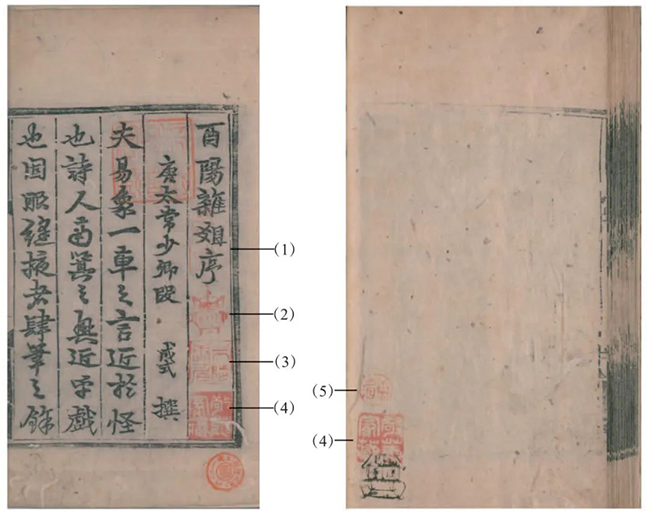 酉陽雜俎序
唐太常少卿段 成式 撰
夫易象一車之言近於怪
也詩人南箕之興近乎戲
也固服縫掖者肆筆之餘
(1)
(2)
(3)
(4)
(5)
(4)